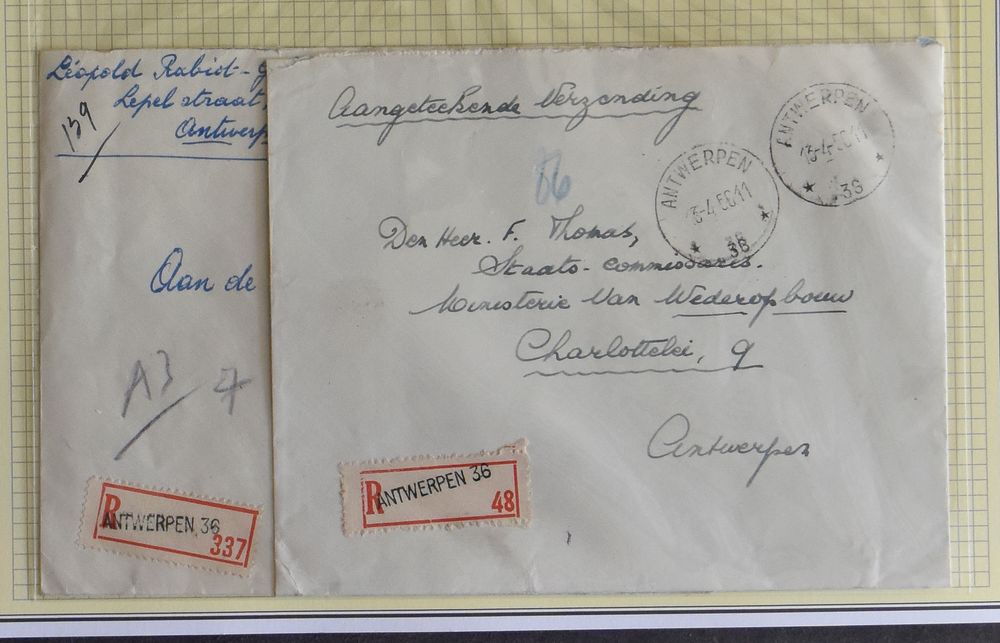 Léopold Rabiot-
Lepelstraat,
Antwerp
139
Aan de
A3 7
R
ANTWERPEN 36
337
Aangeteekende Verzending
86
ANTWERPEN
13-4-56 11
36
ANTWERPEN
13-4-56 11
36
Den Heer. F. Thomas,
Staats-commissaris.
Ministerie Van Wederopbouw
Charlottelei, 9
Antwerpen
R
ANTWERPEN 36
48